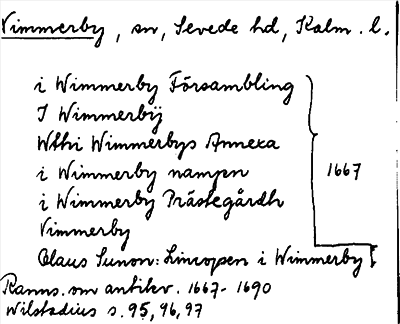 Vimmerby, sn, Sevede hd, Kalm. l.
i Wimmerby Försambling
I Wimmerbÿ
Wthi Wimmerbys Annexa
i Wimmerby nampn
i Wimmerby Prästegårdh
Vimmerby
Olaus Sunon: Lincopen i Wimmerby
1667
Ranns. om antikv. 1667-1690
Wilstadius s. 95, 96, 97